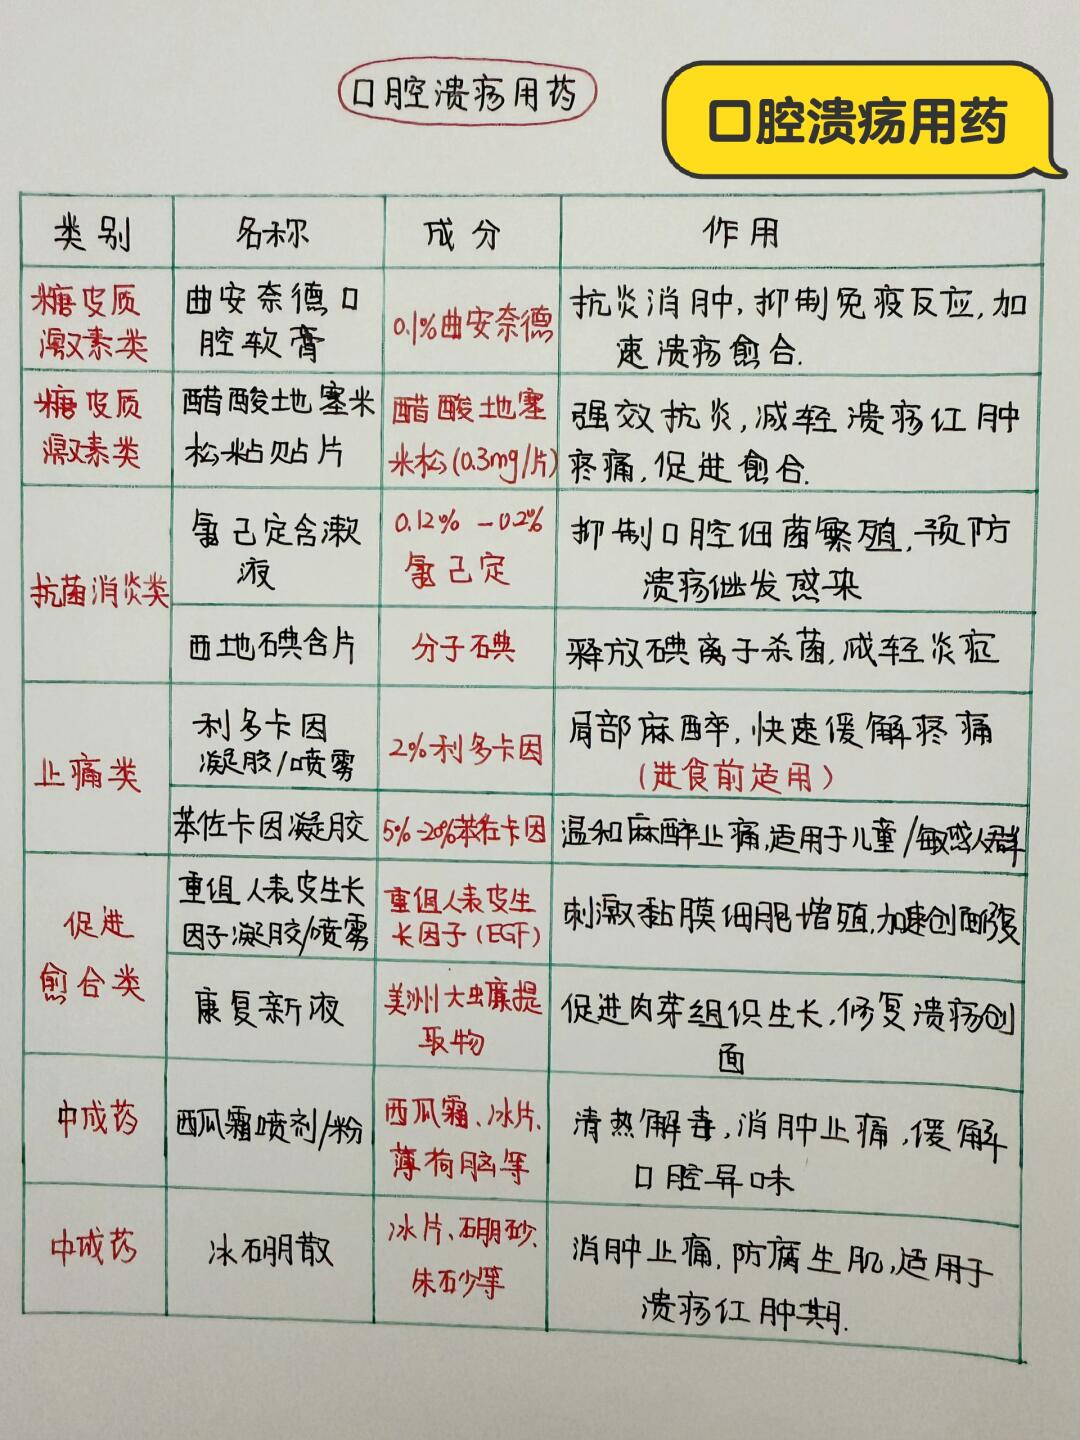 口腔溃疡用药
口腔溃疡用药
类别 名称 成分 作用
糖皮质
激素类
曲安奈德口
腔软膏
0.1%曲安奈德
抗炎消肿,抑制免疫反应,加
速溃疡愈合.
糖皮质
激素类
醋酸地塞米
松粘贴片
醋酸地塞
米松(0.3mg/片)
强效抗炎,减轻溃疡红肿
疼痛,促进愈合.
抗菌消炎类
氯己定含漱
液
0.12%-0.2%
氯己定
抑制口腔细菌繁殖,预防
溃疡继发感染
西地碘含片
分子碘
释放碘离子杀菌,减轻炎症
止痛类
利多卡因
凝胶/喷雾
2%利多卡因
局部麻醉,快速缓解疼痛
(进食前适用)
苯佐卡因凝胶
5%-20%苯佐卡因
温和麻醉止痛,适用于儿童/敏感人群
促进
愈合类
重组人表皮生长
因子凝胶/喷雾
重组人表皮生
长因子(EGF)
刺激黏膜细胞增殖,加速创面修复
康复新液
美洲大虫廉提
取物
促进肉芽组织生长,修复溃疡创
面
中成药
西瓜霜喷剂/粉
西瓜霜、冰片、
薄荷脑等
清热解毒,消肿止痛,缓解
口腔异味
中成药
冰硼散
冰片、硼砂、
朱砂等
消肿止痛,防腐生肌,适用于
溃疡红肿期.